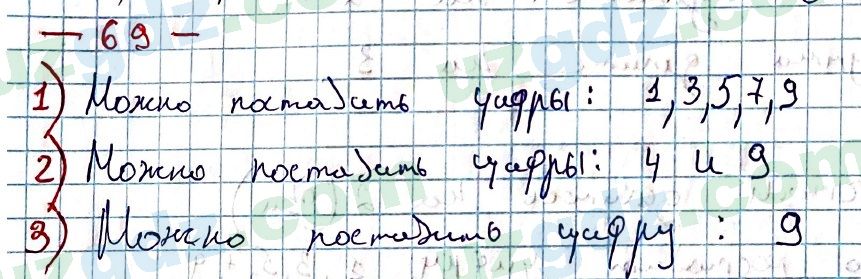 — 69 —
1) Можно поставить цифры: 1,3,5,7,9
2) Можно поставить цифры: 4 и 9
3) Можно поставить цифру : 9